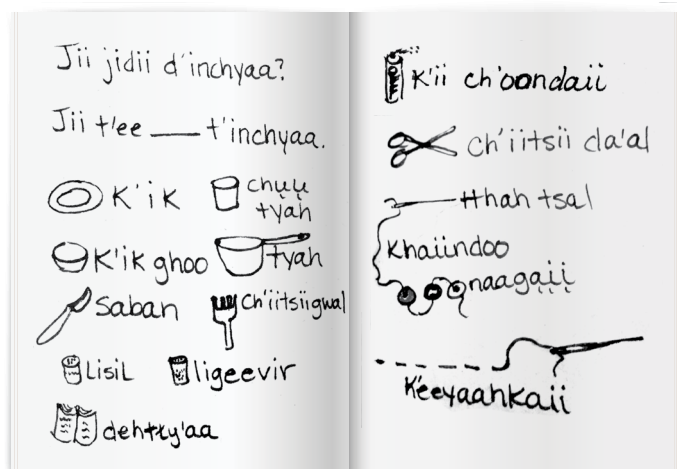 Jii jidii d'inchyaa?
Jii t'ee ___ t'inchyaa.
K'ik
chųų tyah
K'ik ghoo
tyah
saban
ch'iitsiigwal
Lisil
ligeevir
dehtły'aa
K'ii ch'oondaii
ch'iitsii da'al
tthah tsal
khaiindoo
naagąįį
K'eeyaahkaii